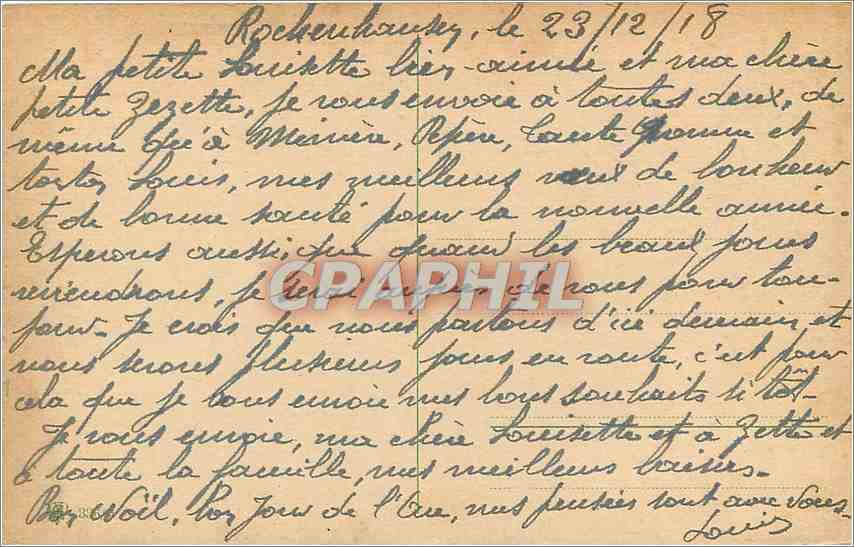 Rockenhausen, le 23/12/18
Ma petite Louisette bien aimée et ma chère
petite Zezette, je vous envoie à toutes deux, de
même qu'à Mémère, Pépère, Tante Jeanne et
tonton Louis, mes meilleurs vœux de bonheur
et de bonne santé pour la nouvelle année.
Esperons aussi, que quand les beaux jours
reviendrons, je serai auprès de vous pour tou-
jours. Je crois que nous partons d'ici demain, et
nous serons plusieurs jours en route, c'est pour
cela que je vous envoie mes bons souhaits si tôt.
Je vous envoie, ma chère Louisette et à Zette et
à toute la famille, mes meilleurs baisers.
Bon Noël, bon Jour de l'An, mes pensées sont avec vous.
Louis
CPAPHIL